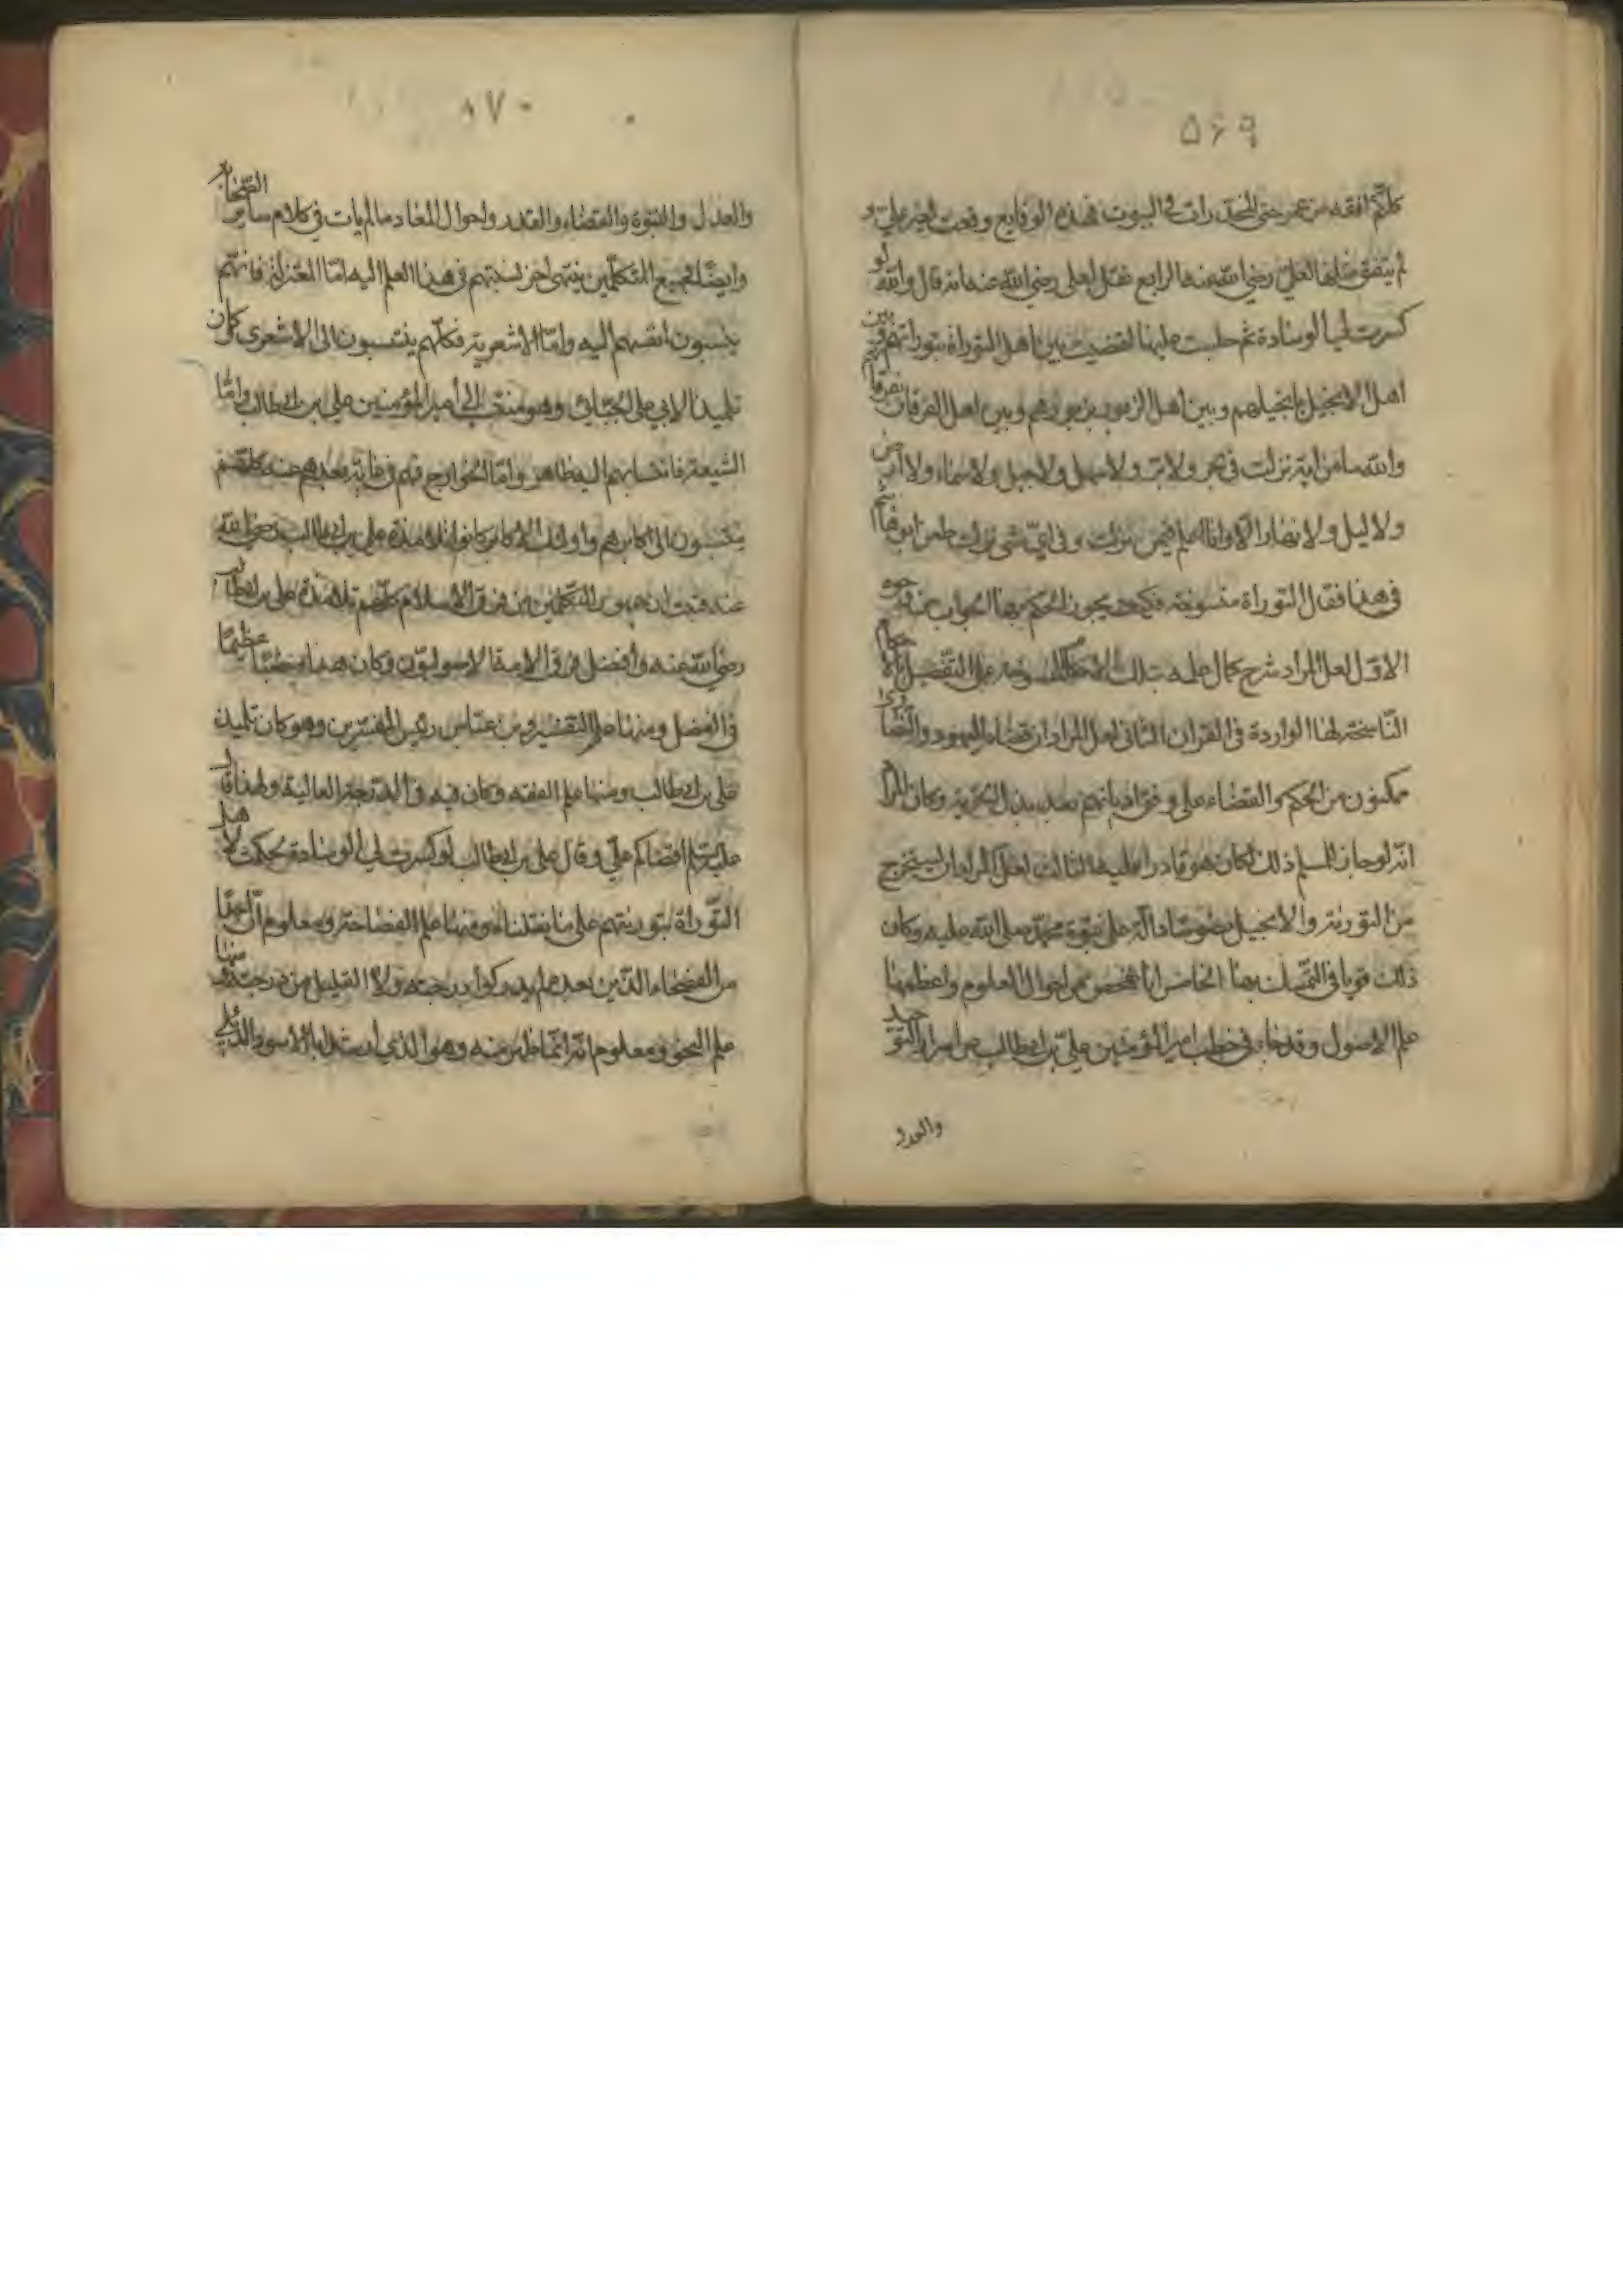 ۵۶۹
كلكم افقه من عمر حتى المخدرات في البيوت فهذه الوقايع وقعت لغير علي و
لم يتفق مثلها لعلي رضي الله عنه الرابع نقل لعلي رضي الله عنه انه قال والله لو
كسرت لي الوسادة ثم جلست عليها لقضيت بين اهل التوراة بتوراتهم وبين
اهل الانجيل بانجيلهم وبين اهل الزبور بزبورهم وبين اهل الفرقان بفرقانهم
والله ما من اية نزلت في بحر ولا بر ولا سهل ولا جبل ولا سماء ولا ارض
ولا ليل ولا نهار الا وانا اعلم فيمن نزلت وفي اي شئ نزلت طعن ابو هاشم
في هذا فقال التوراة منسوخة فكيف يجوز الحكم بها الجواب عنه
الاول لعل المراد شرح كمال علمه بتلك الاحكام المنسوخة على التفصيل
الناسخة لها الواردة في القران الثاني لعل المراد ان قضاة اليهود والنصارى
ممكنون من الحكم والقضاء على وفق اديانهم بعد بذل الجزية وكان المراد
انه لو جاز للمسلم ذلك لكان هو قادرا عليه الثالث لعل المراد ان يستخرج
من التورية والانجيل نصوصا دالة على نبوة محمد صلى الله عليه وكان
ذلك قويا في التمسك بها الخامس انا نفحص عن احوال العلوم واعظمها
علم الاصول وقد جاء في خطب امير المؤمنين علي بن ابيطالب من اسرار التوحيد
والعدل
۵۷۰
والعدل والنبوة والقضاء والقدر واحوال المعاد ما لم يات في كلام ساير الصحابة
وايضا فجميع المتكلمين ينتهي اخر نسبتهم في هذا العلم اليه اما المعتزلة فانهم
ينسبون انفسهم اليه واما الاشعرية فكلهم ينتسبون الى الاشعري وكان
تلميذا لابي علي الجبائي وهو منتسب الى أمير المؤمنين علي بن ابيطالب واما
الشيعة فانتسابهم اليه ظاهر واما الخوارج فهم في غاية بعدهم عنه كلهم
ينتسبون الى اكابرهم واولئك الاكابر كانوا تلامذة علي بن ابيطالب رضي الله
عنه فثبت ان جمهور المتكلمين من فرق الاسلام كلهم تلامذة علي بن ابيطالب
رضي الله عنه وأفضل فرق الامة الاصوليون وكان هذا منصبا عظيما
في الفضل ومنها علم التفسير وبن عباس رئيس المفسرين وهو كان تلميذ
علي بن ابيطالب ومنها علم الفقه وكان فيه في الدرجة العالية ولهذا قال
عليه السلم اقضاكم علي وقال علي بن ابيطالب لو كسرت لي الوسادة لحكمت لاهل
التوراة بتوريتهم على ما نقلناه ومنها علم الفصاحة ومعلوم ان احدا
من الفصحاء الذين بعده لم يدركوا درجته ولا القليل من درجته ومنها
علم النحو ومعلوم انه انما ظهر منه وهو الذي أرشد ابا الاسود الدئلي